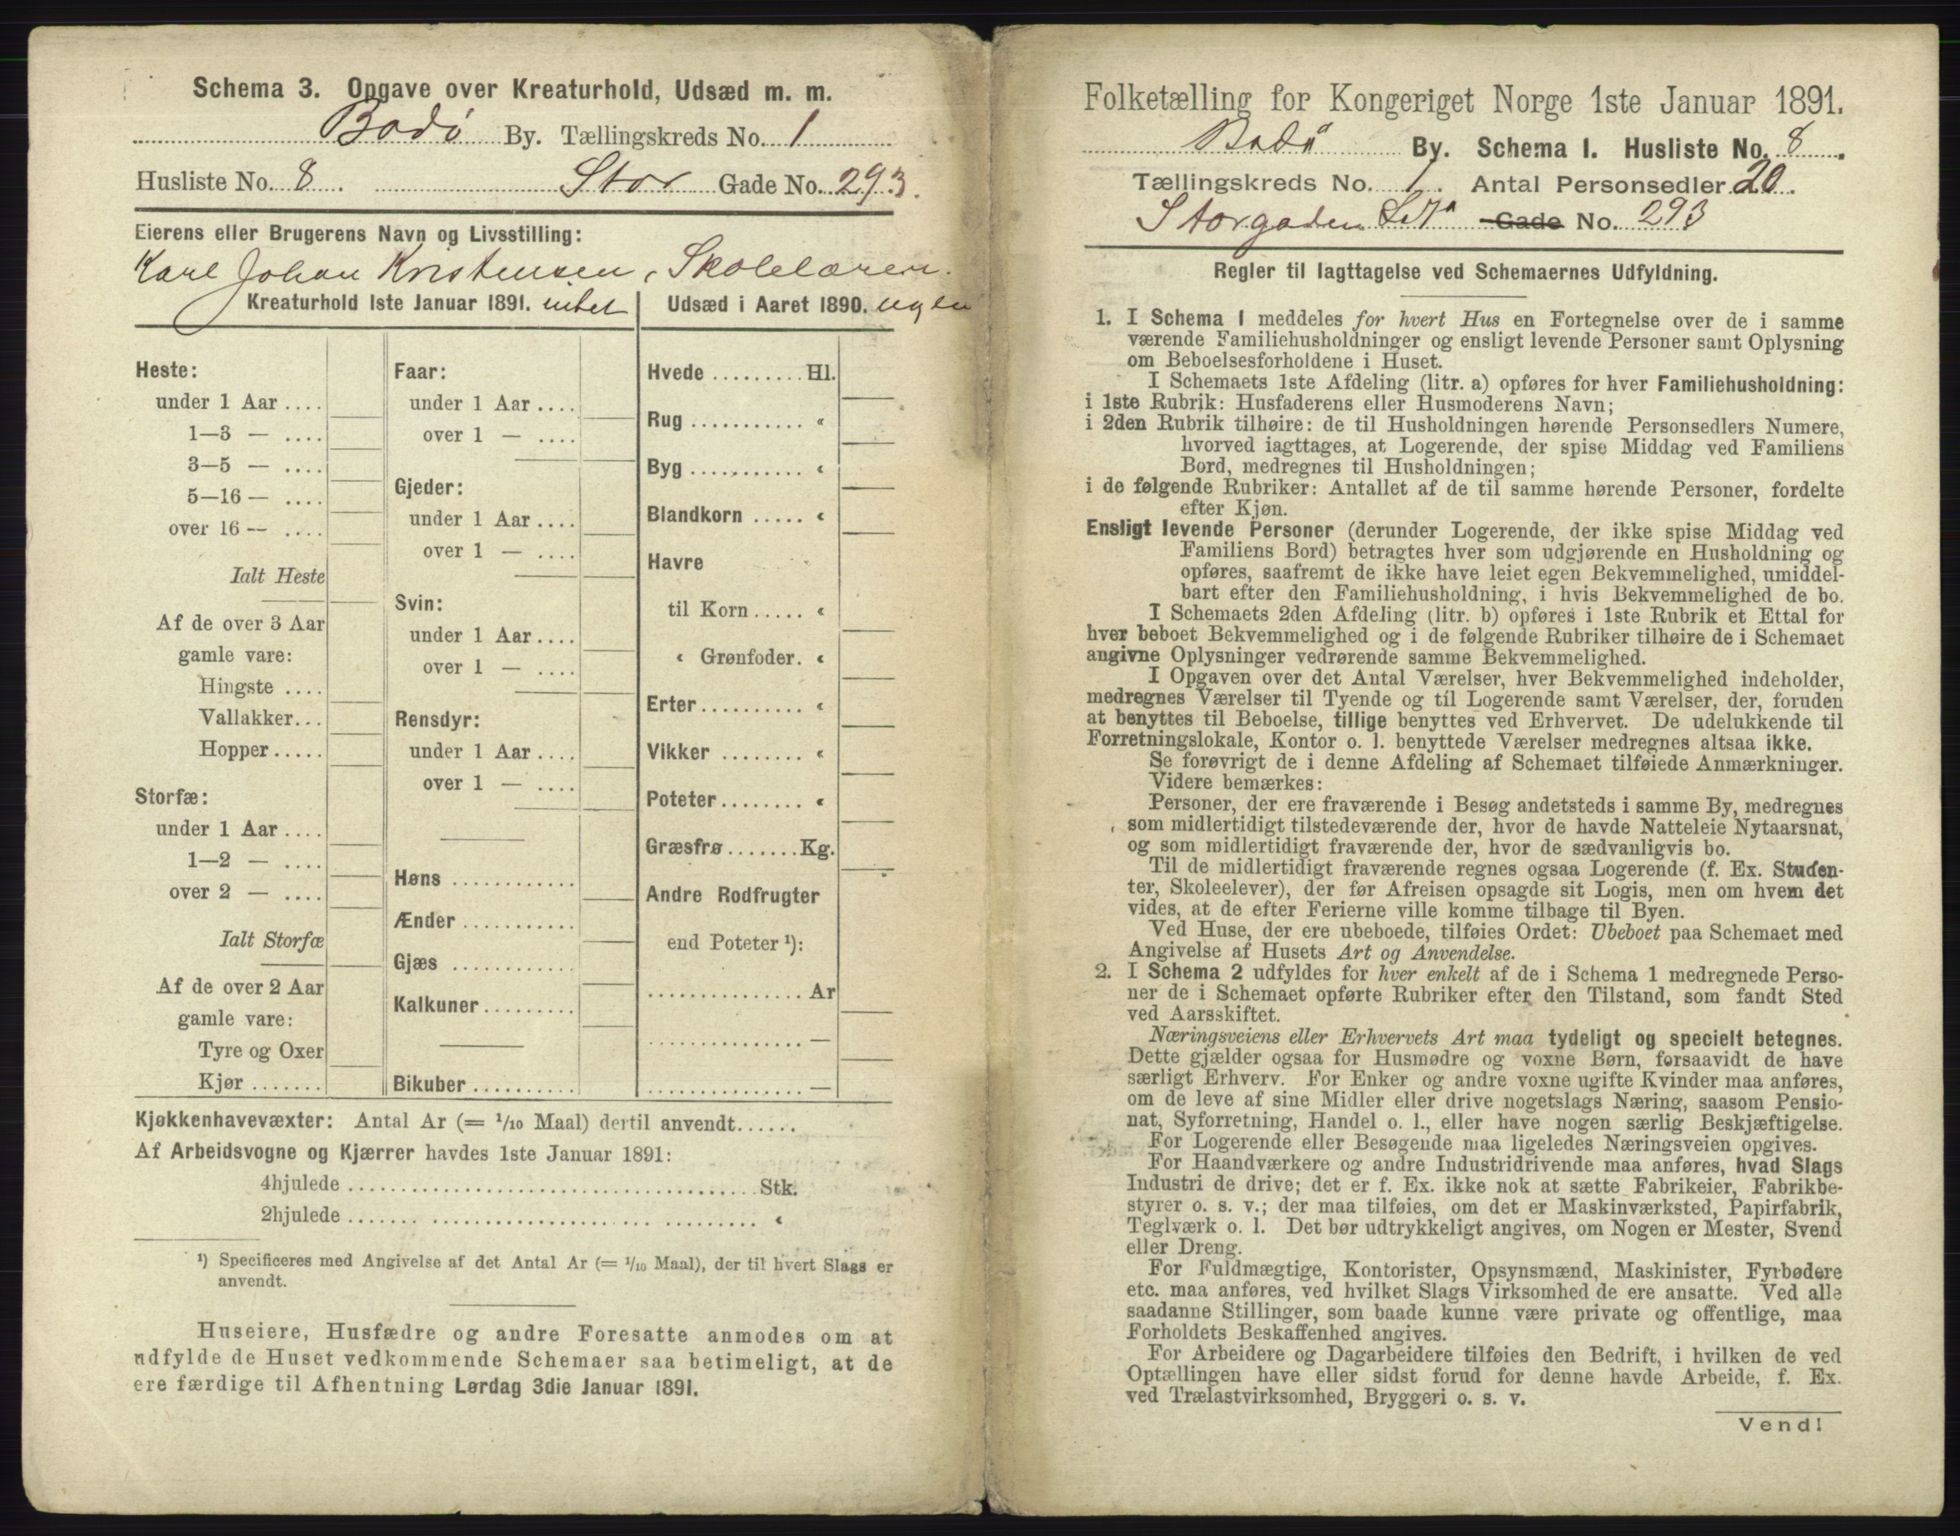 Schema 3. Opgave over Kreaturhold, Udsæd m. m.
Bodø By. Tællingskreds No. 1
Husliste No. 8. Stor Gade No. 293.
Eierens eller Brugerens Navn og Livsstilling:
Karl Johan Kristensen, Skolelærer.
Kreaturhold 1ste Januar 1891. intet
Heste:
under 1 Aar ....
1—3 — ....
3—5 — ....
5—16 — ....
over 16 — ....
Ialt Heste
Af de over 3 Aar
gamle vare:
Hingste ....
Vallakker...
Hopper.....
Storfæ:
under 1 Aar ....
1—2 — ....
over 2 — ....
Ialt Storfæ
Af de over 2 Aar
gamle vare:
Tyre og Oxer
Kjør .......
Faar:
under 1 Aar ....
over 1 — ....
Gjeder:
under 1 Aar ....
over 1 — ....
Svin:
under 1 Aar ....
over 1 — ....
Rensdyr:
under 1 Aar ....
over 1 — ....
Høns ............
Ænder ...........
Gjæs ............
Kalkuner .........
Bikuber ..........
Udsæd i Aaret 1890. ingen
Hvede ......... Hl.
Rug ........... «
Byg ............ «
Blandkorn ..... «
Havre
til Korn ..... «
« Grønfoder. «
Erter.......... «
Vikker ........ «
Poteter........ «
Græsfrø.......Kg.
Andre Rodfrugter
end Poteter ¹):
............... Ar
............... —
............... —
Kjøkkenhavevæxter: Antal Ar (= 1/10 Maal) dertil anvendt......
Af Arbeidsvogne og Kjærrer havdes 1ste Januar 1891:
4hjulede ....................................... Stk.
2hjulede ....................................... «
¹) Specificeres med Angivelse af det Antal Ar (= 1/10 Maal), der til hvert Slags er
anvendt.
Huseiere, Husfædre og andre Foresatte anmodes om at
udfylde de Huset vedkommende Schemaer saa betimeligt, at de
ere færdige til Afhentning Lørdag 3die Januar 1891.
Folketælling for Kongeriget Norge 1ste Januar 1891.
Bodø By. Schema 1. Husliste No. 8.
Tællingskreds No. 1. Antal Personsedler 20.
Storgaden Gade No. 293
Regler til Iagttagelse ved Schemaernes Udfyldning.
1. I Schema 1 meddeles for hvert Hus en Fortegnelse over de i samme
værende Familiehusholdninger og ensligt levende Personer samt Oplysning
om Beboelsesforholdene i Huset.
I Schemaets 1ste Afdeling (litr. a) opføres for hver Familiehusholdning:
i 1ste Rubrik: Husfaderens eller Husmoderens Navn;
i 2den Rubrik tilhøire: de til Husholdningen hørende Personsedlers Numere,
hvorved iagttages, at Logerende, der spise Middag ved Familiens
Bord, medregnes til Husholdningen;
i de følgende Rubriker: Antallet af de til samme hørende Personer, fordelte
efter Kjøn.
Ensligt levende Personer (derunder Logerende, der ikke spise Middag ved
Familiens Bord) betragtes hver som udgjørende en Husholdning og
opføres, saafremt de ikke have leiet egen Bekvemmelighed, umiddel-
bart efter den Familiehusholdning, i hvis Bekvemmelighed de bo.
I Schemaets 2den Afdeling (litr. b) opføres i 1ste Rubrik et Ettal for
hver beboet Bekvemmelighed og i de følgende Rubriker tilhøire de i Schemaet
angivne Oplysninger vedrørende samme Bekvemmelighed.
I Opgaven over det Antal Værelser, hver Bekvemmelighed indeholder,
medregnes Værelser til Tyende og til Logerende samt Værelser, der, foruden
at benyttes til Beboelse, tillige benyttes ved Erhvervet. De udelukkende til
Forretningslokale, Kontor o. l. benyttede Værelser medregnes altsaa ikke.
Se forøvrigt de i denne Afdeling af Schemaet tilføiede Anmærkninger.
Videre bemærkes:
Personer, der ere fraværende i Besøg andetsteds i samme By, medregnes
som midlertidigt tilstedeværende der, hvor de havde Natteleie Nytaarsnat,
og som midlertidigt fraværende der, hvor de sædvanligvis bo.
Til de midlertidigt fraværende regnes ogsaa Logerende (f. Ex. Studen-
ter, Skoleelever), der før Afreisen opsagde sit Logis, men om hvem det
vides, at de efter Ferierne ville komme tilbage til Byen.
Ved Huse, der ere ubeboede, tilføies Ordet: Ubeboet paa Schemaet med
Angivelse af Husets Art og Anvendelse.
2. I Schema 2 udfyldes for hver enkelt af de i Schema 1 medregnede Perso-
ner de i Schemaet opførte Rubriker efter den Tilstand, som fandt Sted
ved Aarsskiftet.
Næringsveiens eller Erhvervets Art maa tydeligt og specielt betegnes.
Dette gjælder ogsaa for Husmødre og voxne Børn, forsaavidt de have
særligt Erhverv. For Enker og andre voxne ugifte Kvinder maa anføres,
om de leve af sine Midler eller drive nogetslags Næring, saasom Pensio-
nat, Syforretning, Handel o. l., eller have nogen særlig Beskjæftigelse.
For Logerende eller Besøgende maa ligeledes Næringsveien opgives.
For Haandværkere og andre Industridrivende maa anføres, hvad Slags
Industri de drive; det er f. Ex. ikke nok at sætte Fabrikeier, Fabrikbe-
styrer o. s. v.; der maa tilføies, om det er Maskinværksted, Papirfabrik,
Teglværk o. l. Det bør udtrykkeligt angives, om Nogen er Mester, Svend
eller Dreng.
For Fuldmægtige, Kontorister, Opsynsmænd, Maskinister, Fyrbødere
etc. maa anføres, ved hvilket Slags Virksomhed de ere ansatte. Ved alle
saadanne Stillinger, som baade kunne være private og offentlige, maa
Forholdets Beskaffenhed angives.
For Arbeidere og Dagarbeidere tilføies den Bedrift, i hvilken de ved
Optællingen have eller sidst forud for denne havde Arbeide, f. Ex.
ved Trælastvirksomhed, Bryggeri o. s. v.
Vend!